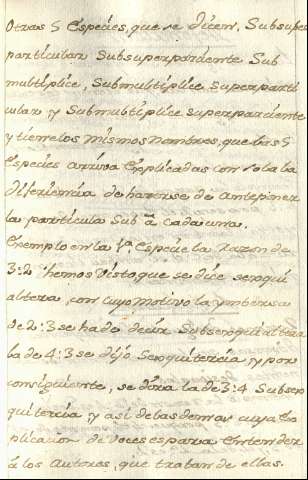 Otras 5 Especies, que se dicen, Subsuper
particular Subsuperparciente Sub
multiplice, Submultiplice superparti
cular y Submultiplice superparciente
y tiene los mismos nombres, que las 5
Especies arriva explicadas con sola la
diferiencia de haverse de anteponer
la particula Sub a cada una.
Exemplo en la 1ª Especie la Razon de
3:2 hemos visto, que se dice sesqui
altera, con cuyo motivo la ymbersa
de 2:3 se ha de decir Subsesquialtera
la de 4:3 se dijo Sesquitercia, y por
consiguiente, se dira la de 3:4 Subses
quitercia y asi de las demas cuya Ex
plicacion de voces es para Entender
a los Autores, que tratan de ellas.